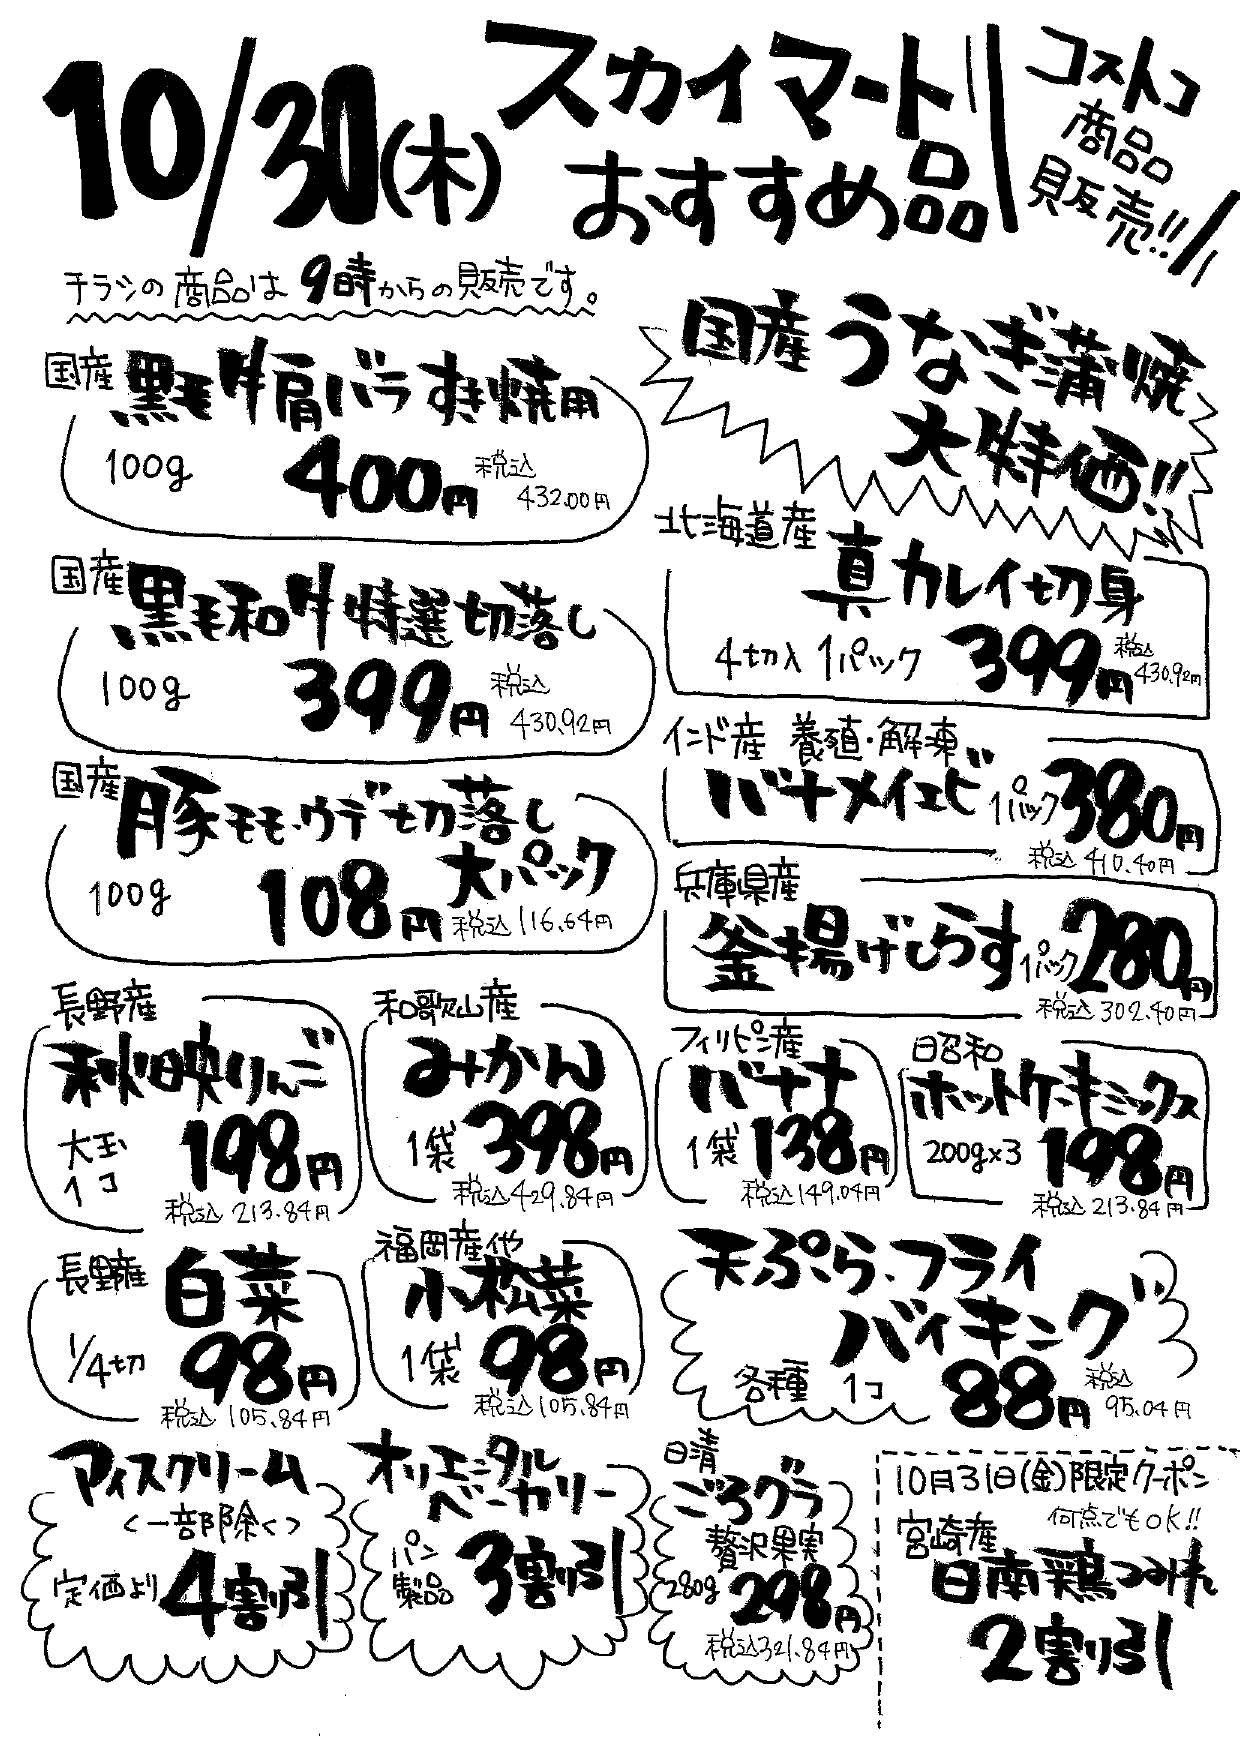 10/30(木)
スカイマート
おすすめ品
コストコ
商品
販売!!
チラシの商品は9時からの販売です。
国産 黒毛牛肩バラすき焼用
100g 400円 税込
432.00円
国産 黒毛和牛特選切落し
100g 399円 税込
430.92円
国産 豚モモ・ウデ切落し
大パック
100g 108円 税込116.64円
国産うなぎ蒲焼
大特価!!
北海道産
真カレイ切身
4切入 1パック 399円 税込
430.92円
インド産 養殖・解凍
バナメイエビ 1パック 380円
税込 410.40円
兵庫県産
釜揚げしらす 1パック 280円
税込 302.40円
長野産
秋映りんご
大玉
1コ 198円
税込 213.84円
和歌山産
みかん
1袋 398円
税込429.84円
フィリピン産
バナナ
1袋 138円
税込149.04円
昭和
ホットケーキミックス
200g×3 198円
税込213.84円
長野産 白菜
1/4切 98円
税込 105.84円
福岡産他
小松菜
1袋 98円
税込105.84円
天ぷら、フライ
バイキング
各種 1コ 88円 税込
95.04円
アイスクリーム
<一部除く>
定価より 4割引
オリエンタル
ベーカリー
パン
製品 3割引
日清
ごろグラ
贅沢果実
280g 298円
税込321.84円
10月31日(金)限定クーポン
何点でもOK!!
宮崎産
日南鶏つみれ
2割引